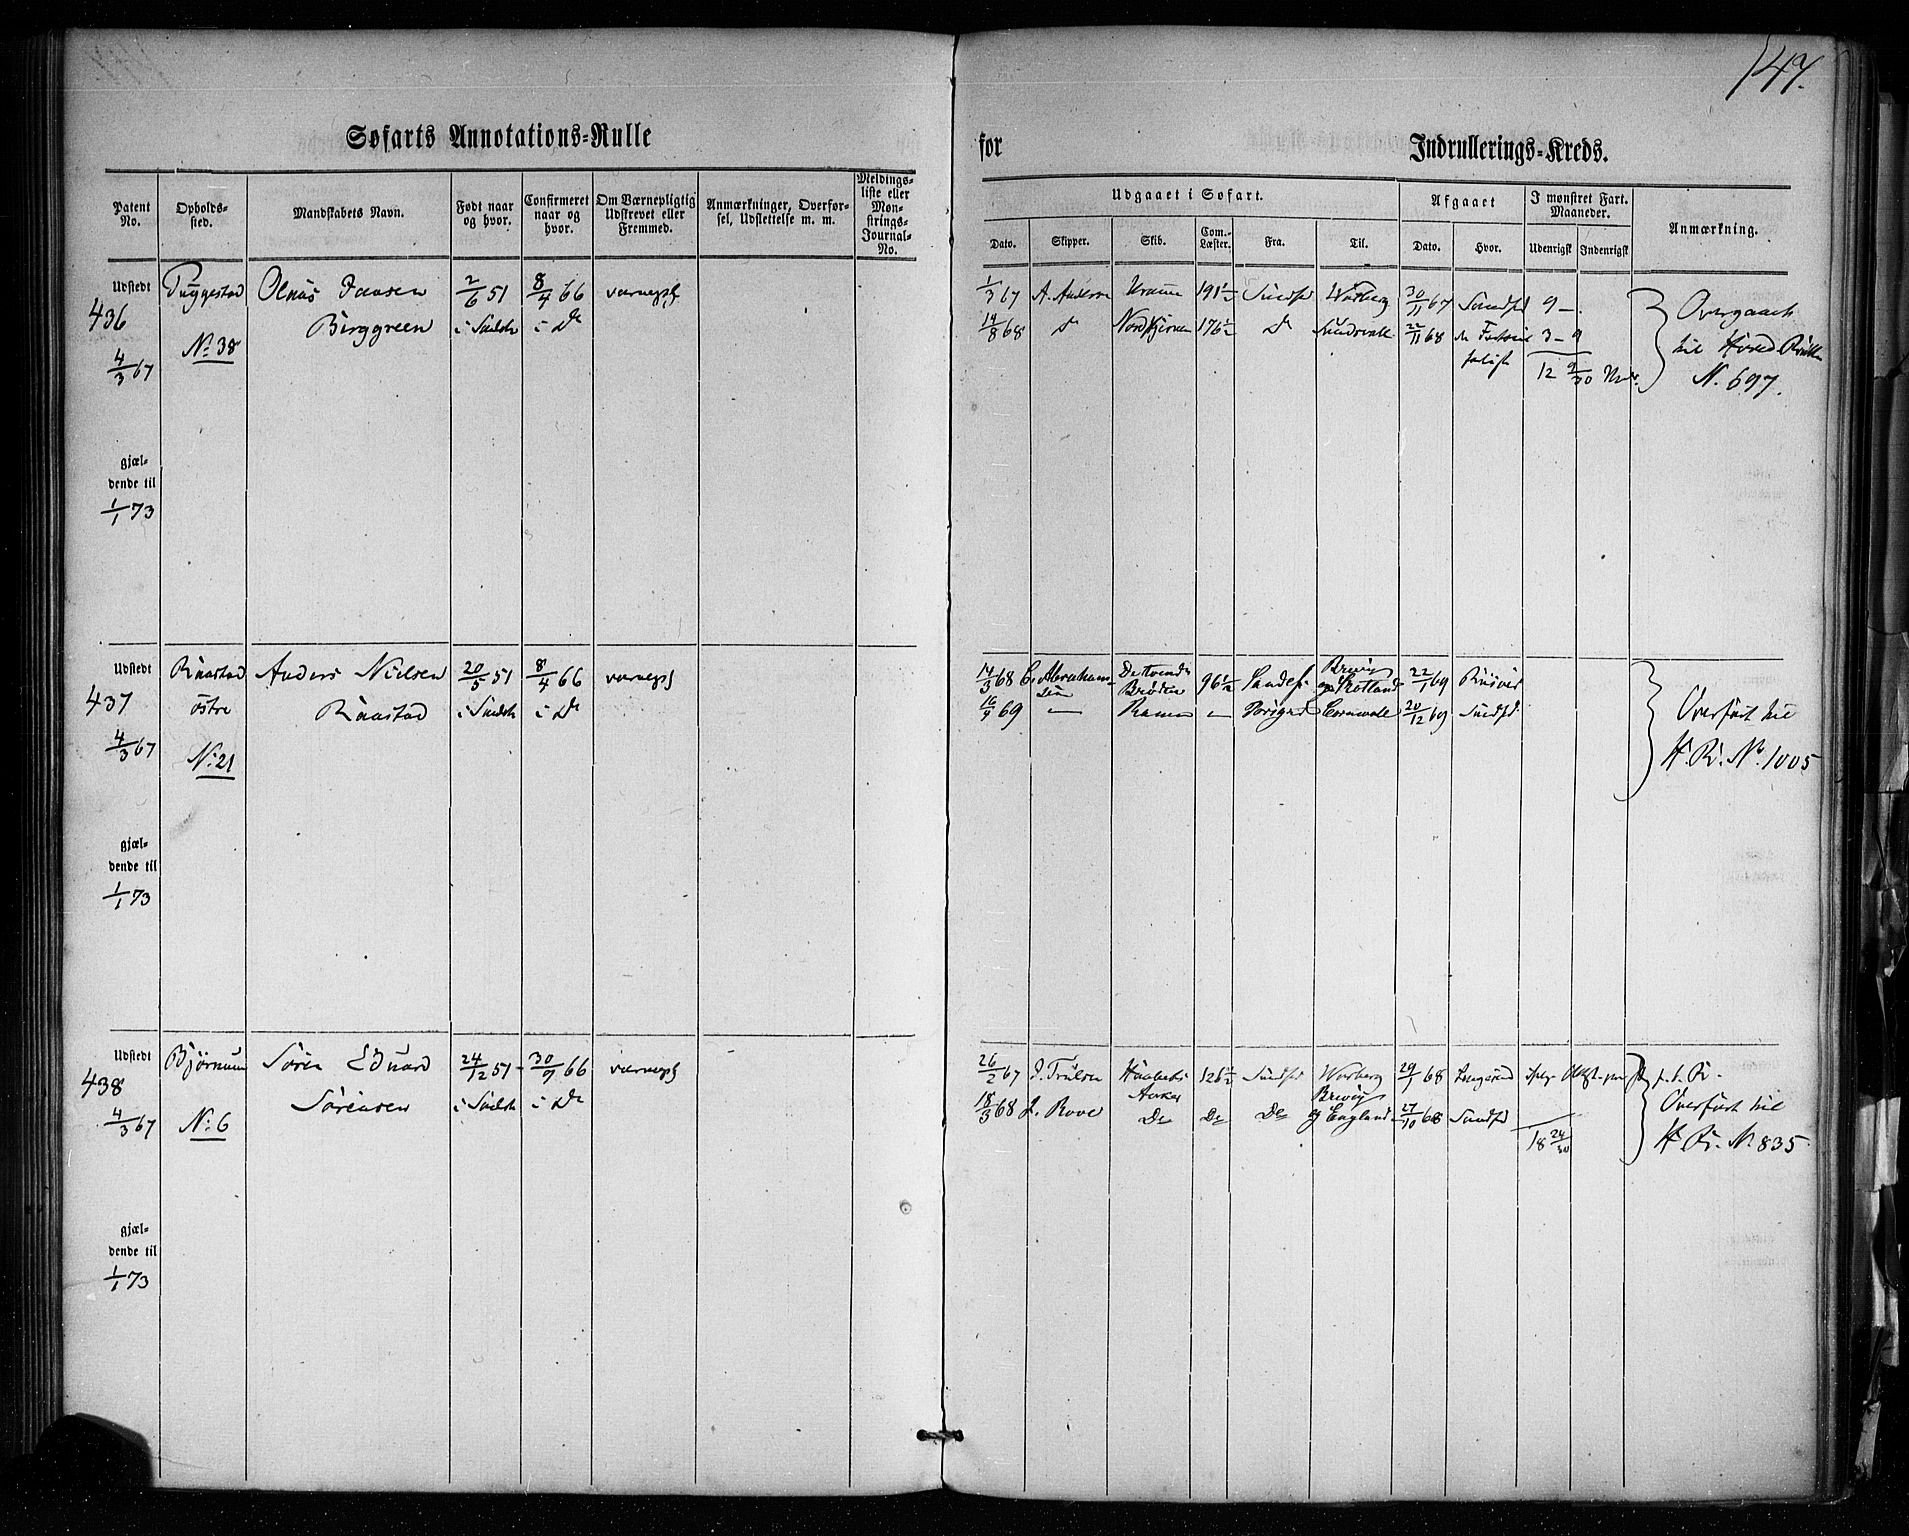 147.
Søfarts Annotations-Rulle for Indrullerings-Kreds.
Patent No.
Opholds-sted.
Mandskabets Navn.
Født naar og hvor.
Confirmeret naar og hvor.
Om Værnepligtig Udskrevet eller Fremmed.
Anmærkninger, Overfør-sel, Udslettelse m. m.
Meldings-liste eller Møn-strings-Journal-No.
Udgaaet i Søfart.
Dato.
Skipper.
Skib.
Com.-Læster.
Fra.
Til.
Afgaaet
Dato.
Hvor.
I mønstret Fart. Maaneder.
Udenrigsk
Indenrigsk
Anmærkning.
Udstedt
436
4/3 67
gjæl-
dende til
1/1 73
No 38
Olaus Jansen
Berggreen
2/6 51
8/4 66
i Do
værnepl
1/3 67 A. Anders 191 Warberg 30/11 67 9 –
14/8 68 do 176½ do Sundsvall 22/11 68 3 – 9
12 9/30
Overgaaet
til Hoved Rullen
N. 697.
Udstedt
437
4/3 67
gjæl-
dende til
1/1 73
Raastad
østre
No 21
Anders Nielsen
Raastad
20/5 51
8/4 66
i Do
værnepl
14/3 68 C. Abraham-
sen
De tvende
Brødre
96½ Sandef Brevig
og Skotland 22/1 69
69 – – Cornwall 20/12 69
Overført til
H. R. No. 1005
Udstedt
438
4/3 67
gjæl-
dende til
1/1 73
Bjørnum
No 6
Søren Eduard
Sørensen
24/12 51
30/9 66
i Do
værnepl
26/2 67 J. Trulsen Haabets
Anker
126½ Warberg 29/1 68 Langesund
18/3 68 J. Rove Do Do Do Brevig
og England 27/10 68
18 24/30
Overført til
H. R. No 835